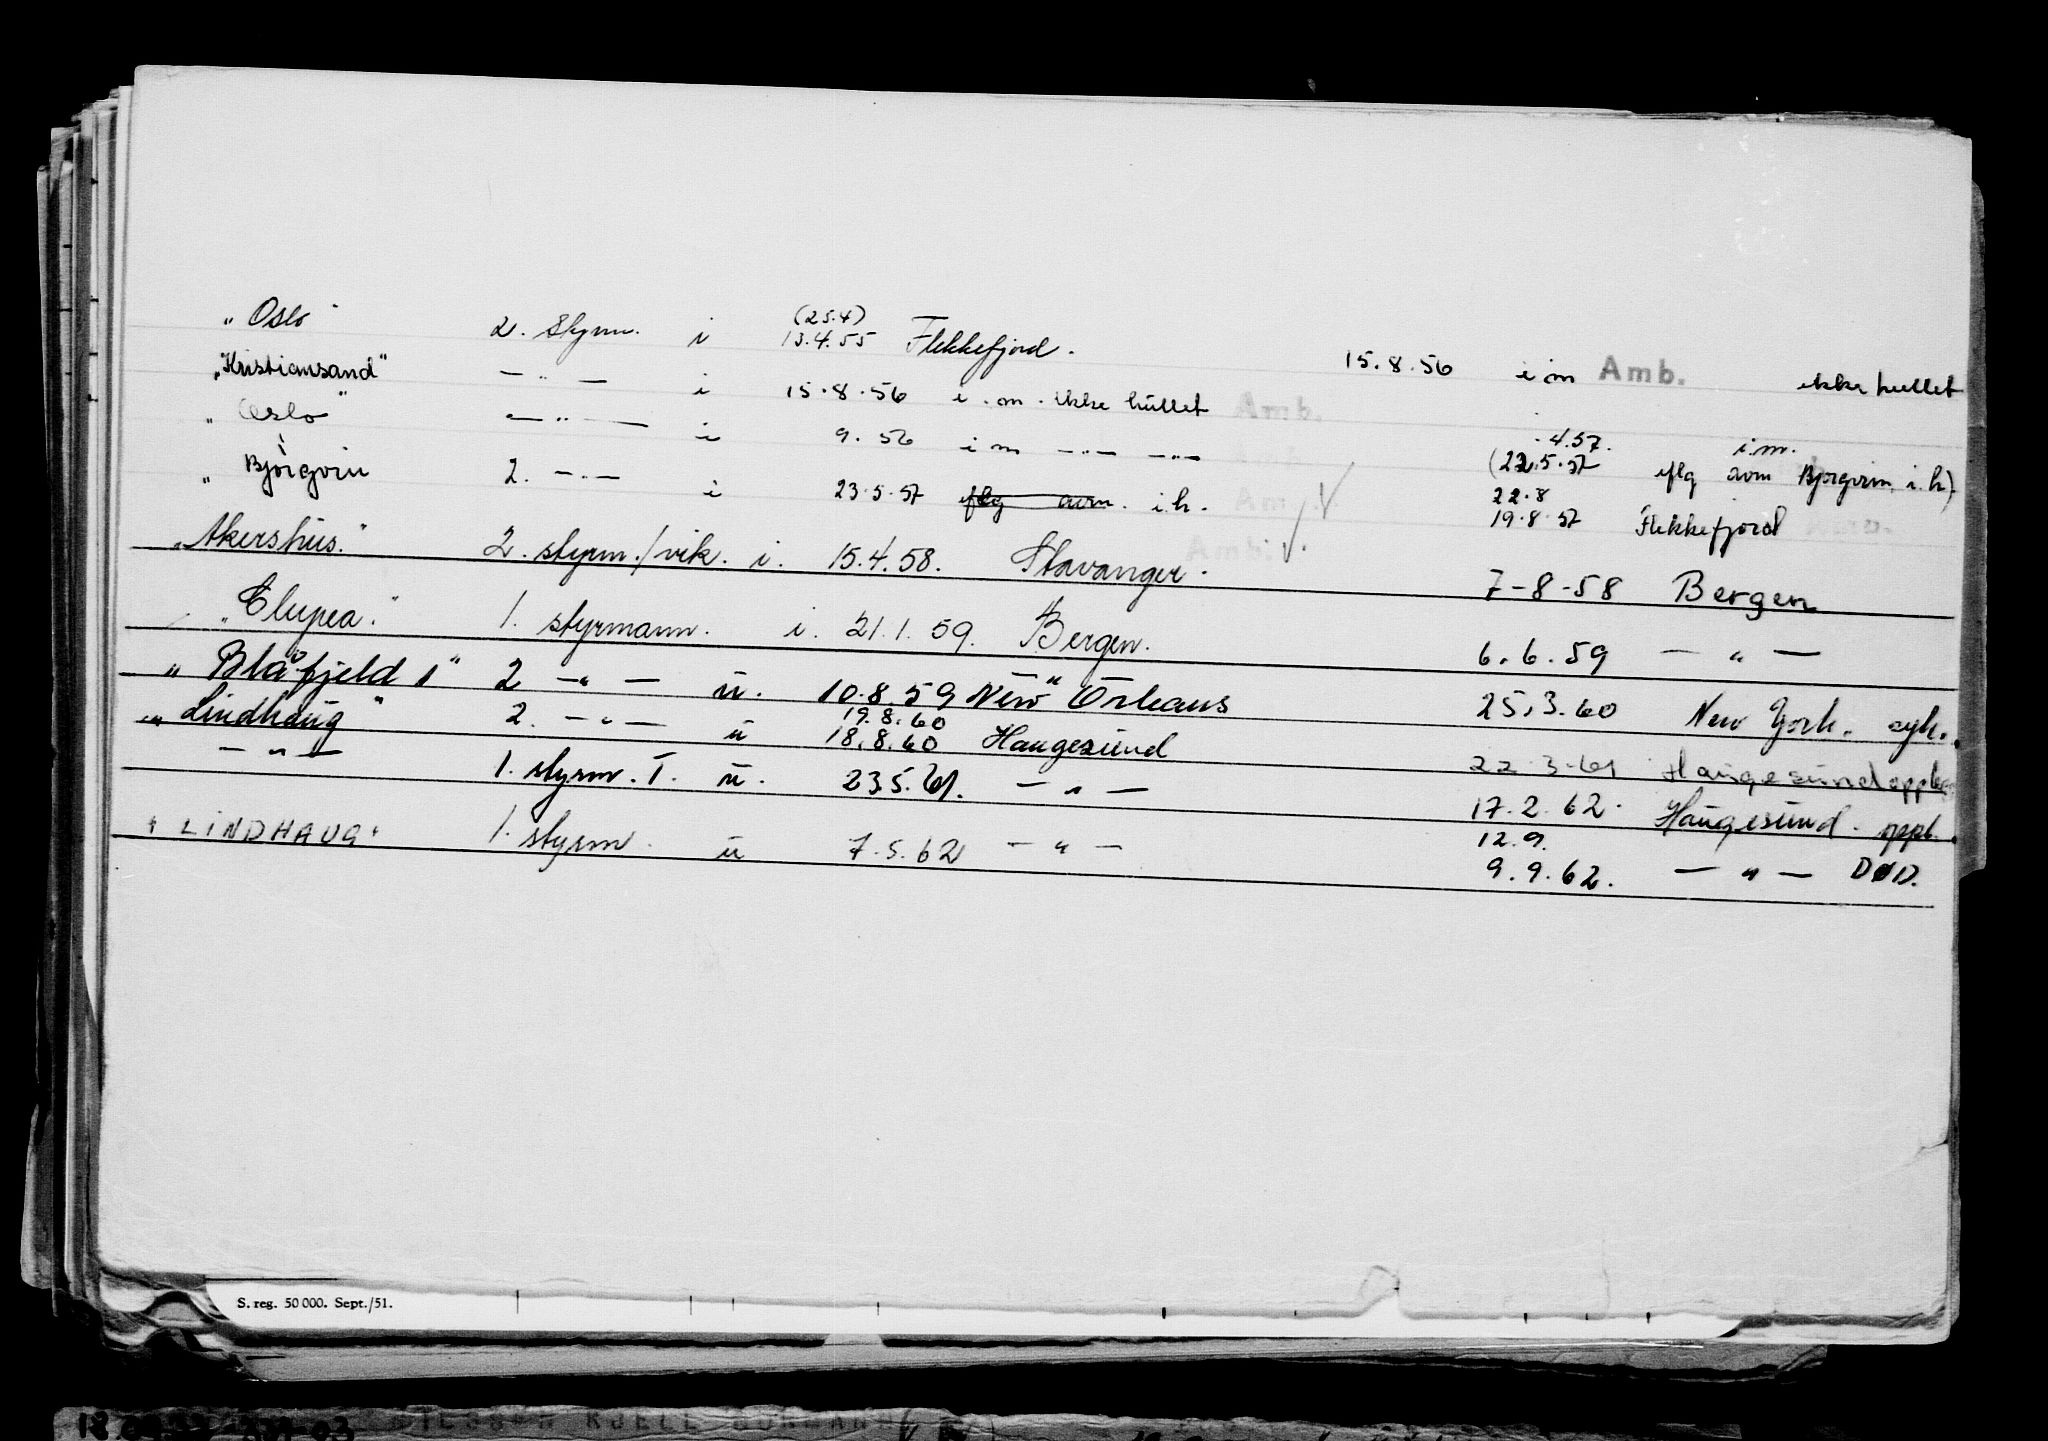 "Oslo" 2. Styrm. i (25.4) 13.4.55 Flekkefjord. 15.8.56 i m Amb. ikke hullet
"Kristiansand" — " — i 15.8.56 i. m. ikke hullet Amb.
"Oslo" — " — i 9.56 i m — " — — " — .4.57. i.m.
"Bjørgvin 2. — " — i 23.5.57 i.h. Am (22.5.57 eflg som Bjørgvin i.h)
22.8 19.8.57 Flekkefjord
"Akershus." 2. styrm./vik. i. 15.4.58. Stavanger. Amb. 7-8-58 Bergen
"Clupea." 1. styrmann. i. 21.1.59. Bergen. 6.6.59 — " —
"Blåfjeld 1" 2 — " — u. 10.8.59 New Orleans 25.3.60 New York. syk.
"Lindhaug" 2. — " — u 19.8.60 18.8.60 Haugesund 22-3-61 Haugesund
— " — 1. styrm. T. u. 23.5.61. — " — 17.2.62. Haugesund. oppl.
"LINDHAUG" 1. styrm. u 7.5.62 — " — 12.9. 9.9.62. — " — DØD.
S. reg. 50 000. Sept./51.
KJELL